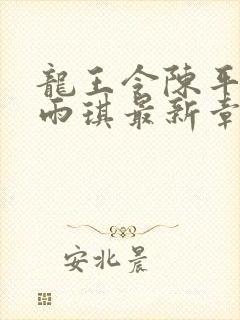 龍王令陳平
雨琪最新章
安北晨